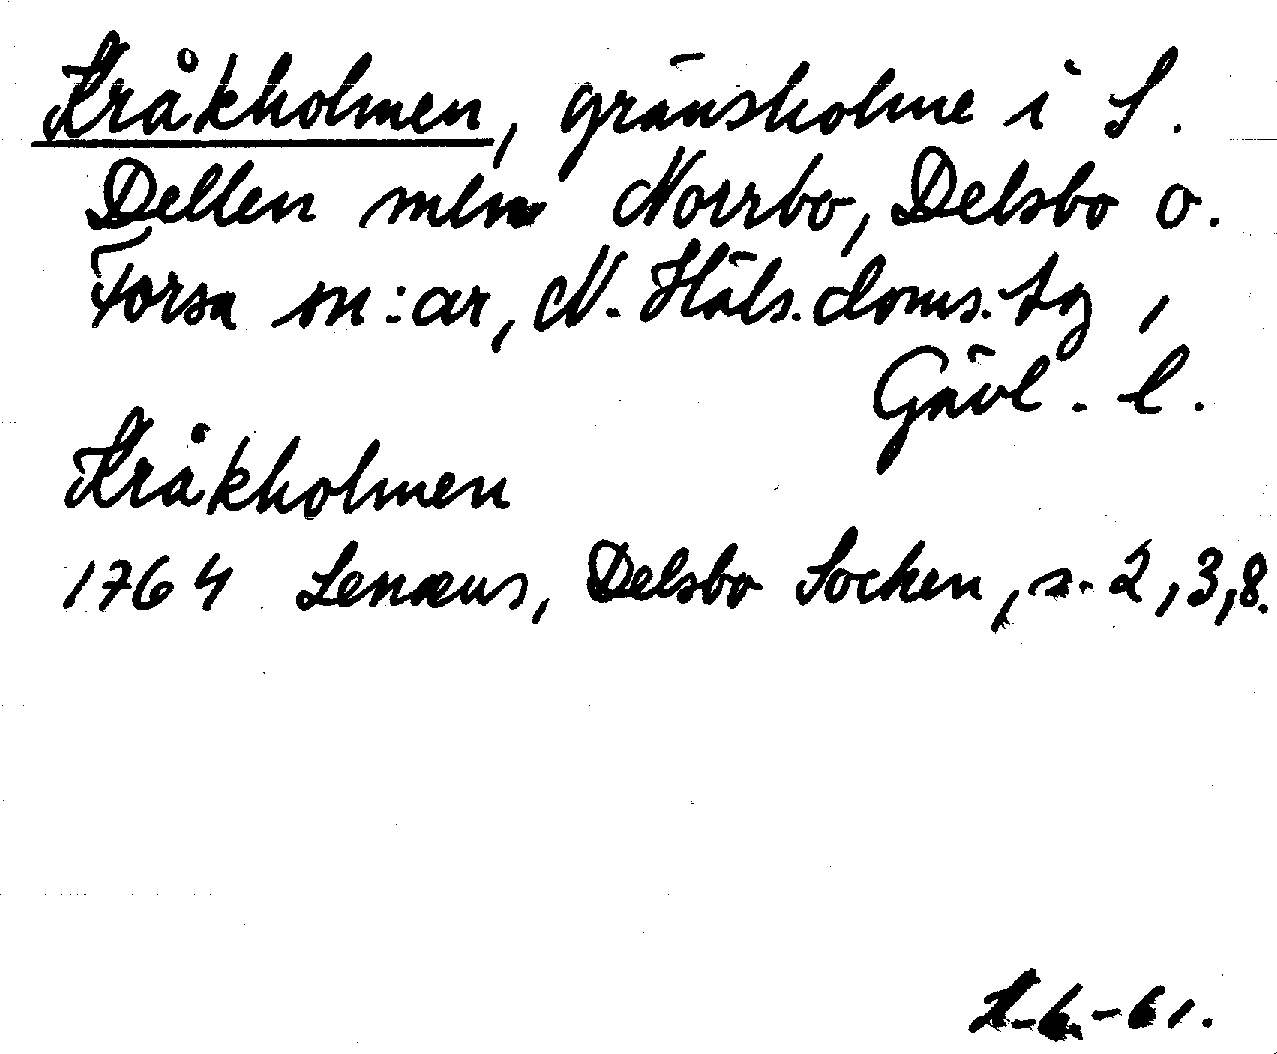 Kråkholmen, gränsholme i S.
Dellen mln Norrbo, Delsbo o.
Forsa sn:ar, N. Häls. doms. tg,
Gävl. l.
Kråkholmen
1764 Lenæus, Delsbo Socken, s. 2, 3, 8.
-61.